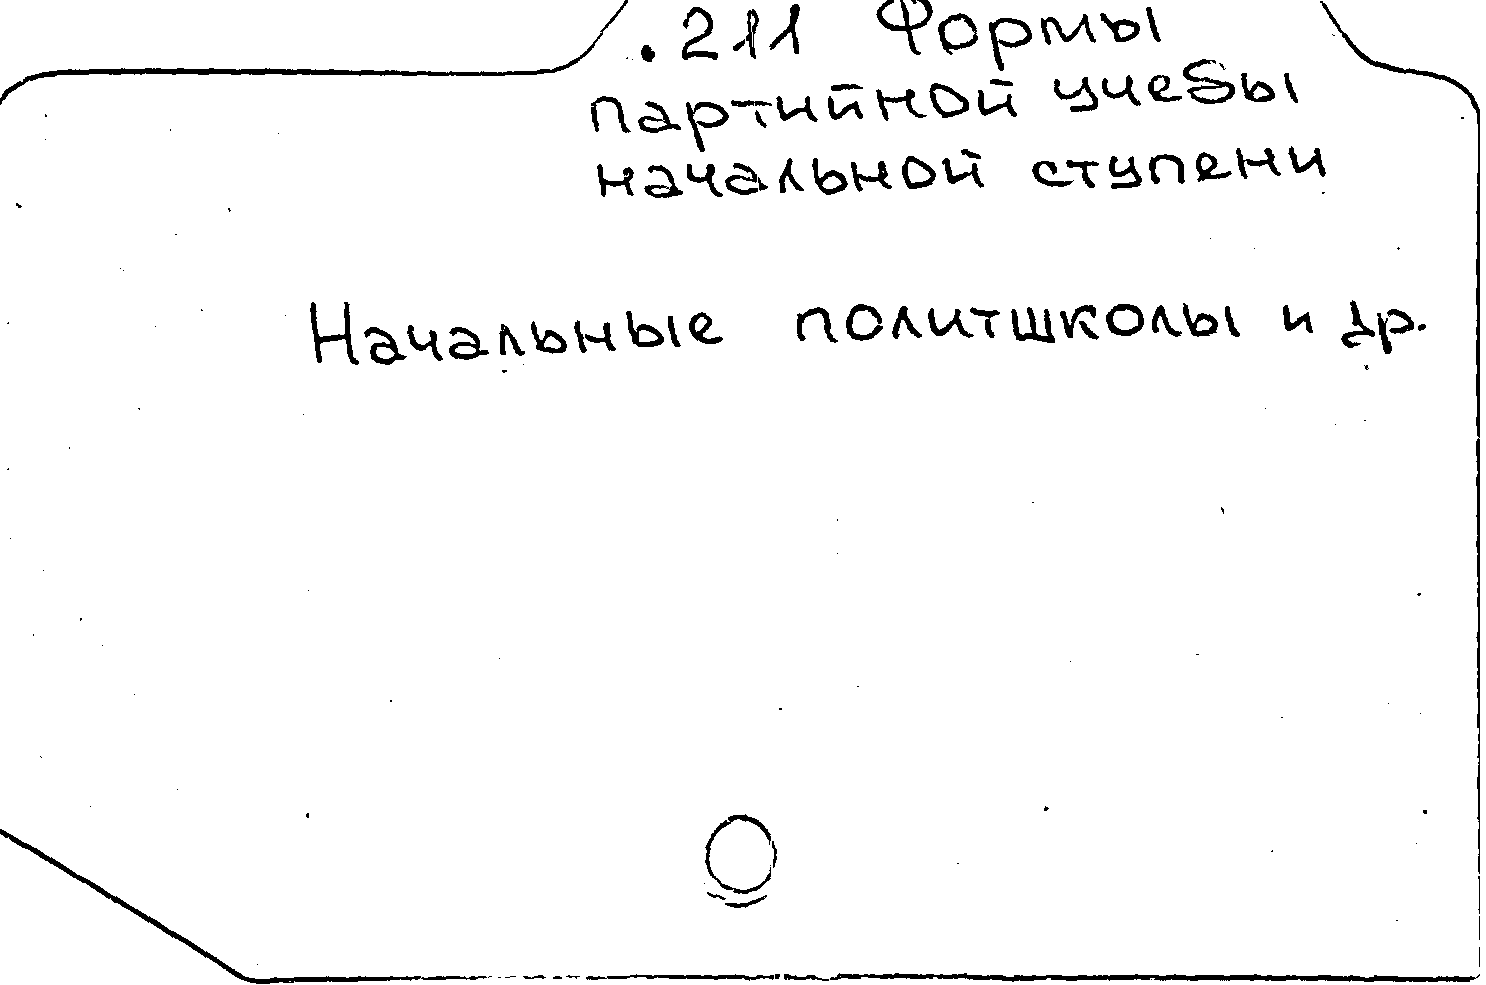 .211 Формы
партийной учебы
начальной ступени
Начальные политшколы и др.